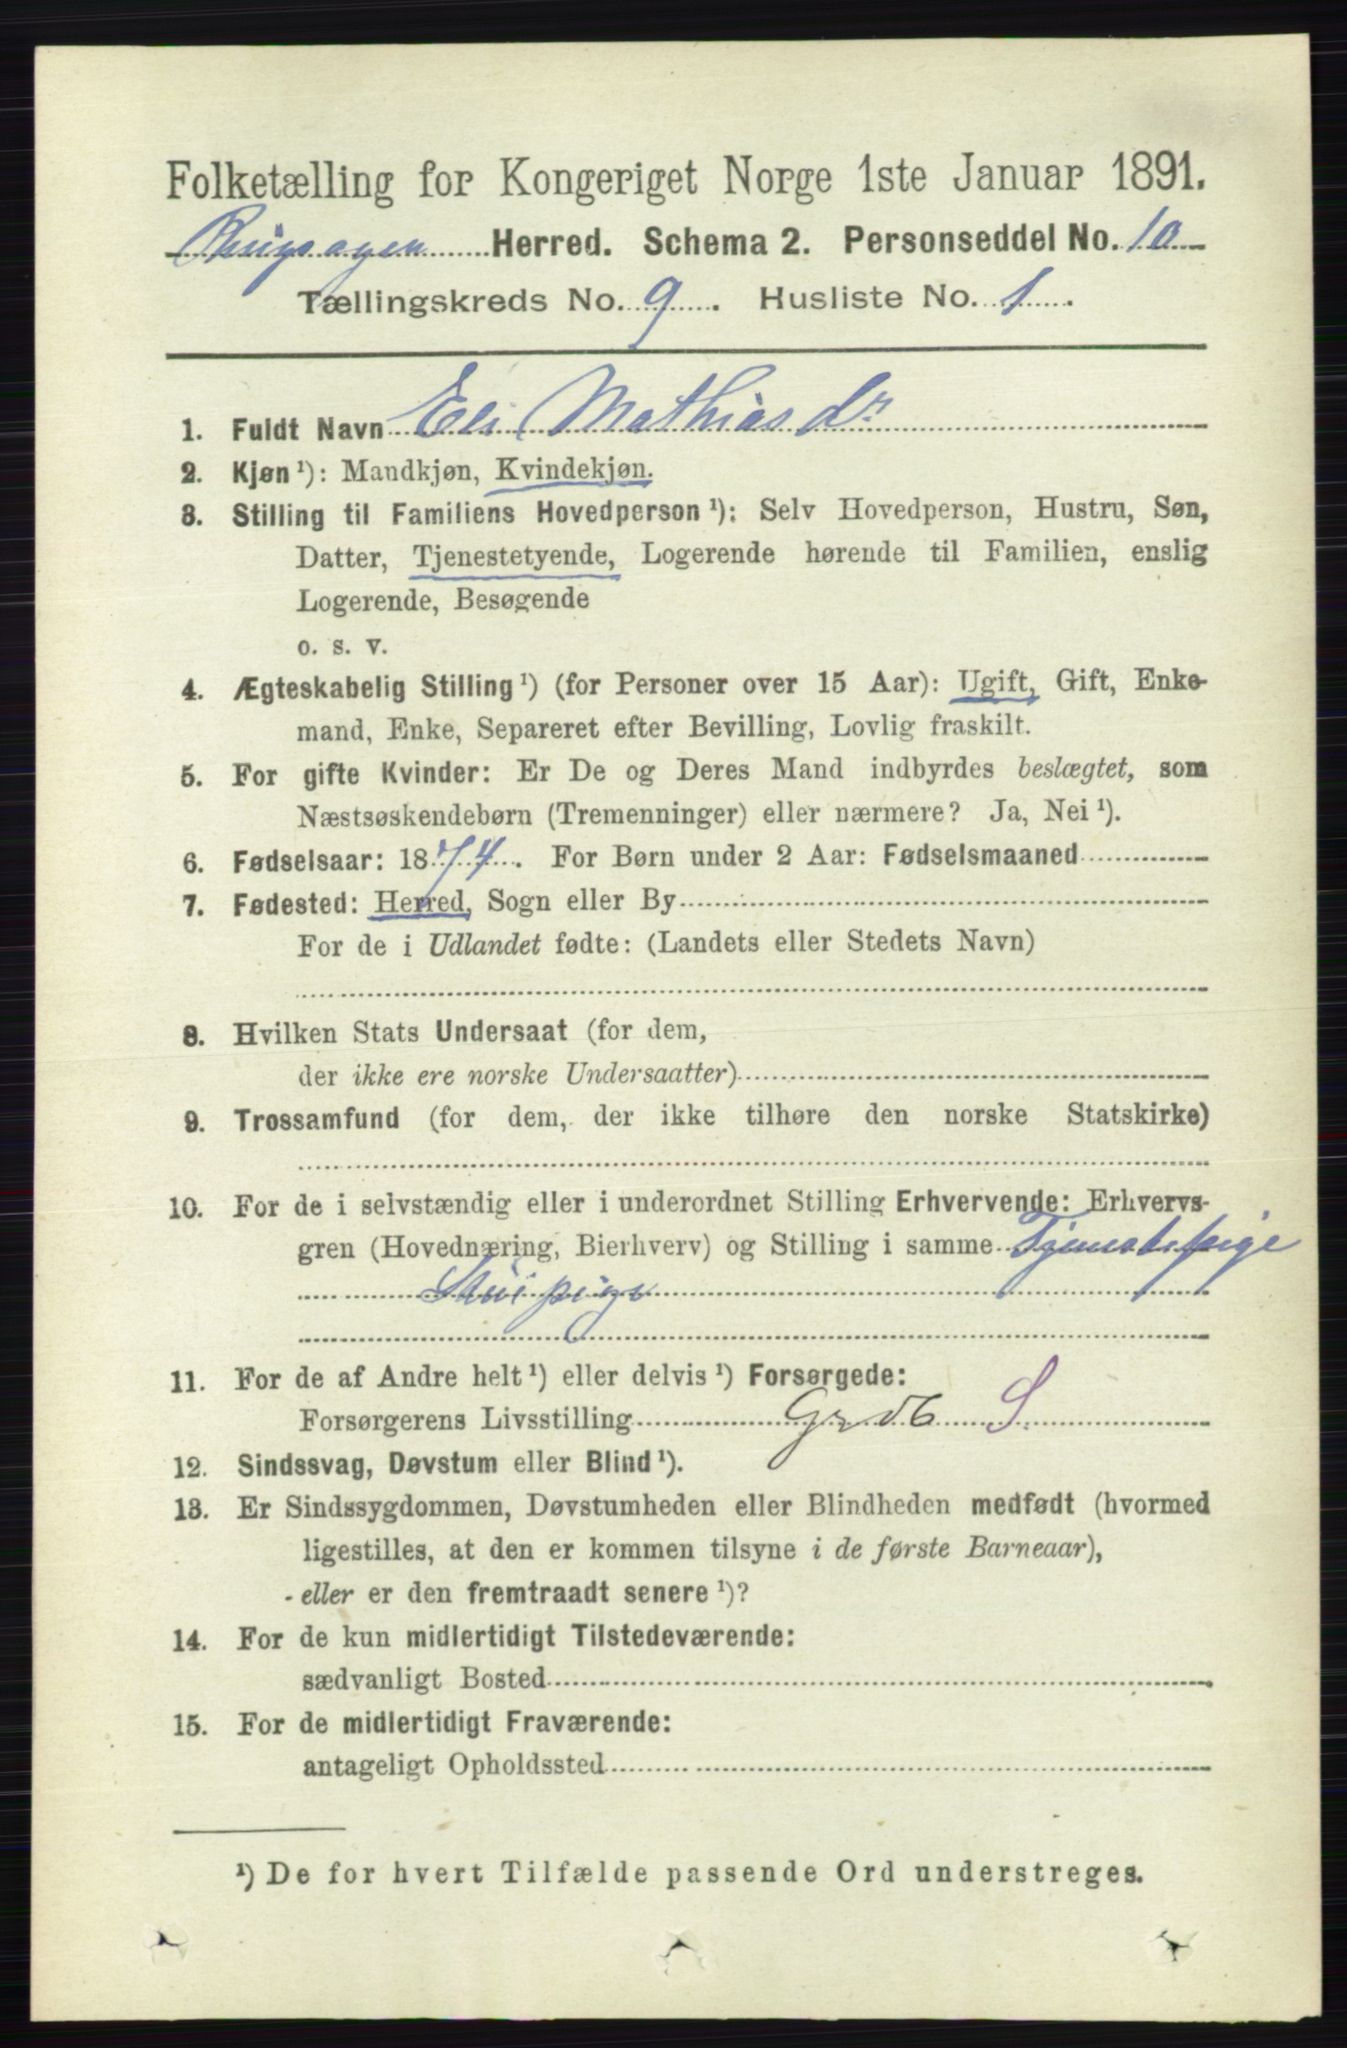 Folketælling for Kongeriget Norge 1ste Januar 1891.
Ringsagen Herred. Schema 2. Personseddel No. 10
Tællingskreds No. 9. Husliste No. 1.
1. Fuldt Navn Eli Mathiasdr
2. Kjøn ¹): Mandkjøn, Kvindekjøn.
3. Stilling til Familiens Hovedperson ¹): Selv Hovedperson, Hustru, Søn,
Datter, Tjenestetyende, Logerende hørende til Familien, enslig
Logerende, Besøgende
o. s. v.
4. Ægteskabelig Stilling ¹) (for Personer over 15 Aar): Ugift, Gift, Enke-
mand, Enke, Separeret efter Bevilling, Lovlig fraskilt.
5. For gifte Kvinder: Er De og Deres Mand indbyrdes beslægtet, som
Næstsøskendebørn (Tremenninger) eller nærmere? Ja, Nei ¹).
6. Fødselsaar: 1874. For Børn under 2 Aar: Fødselsmaaned
7. Fødested: Herred, Sogn eller By
For de i Udlandet fødte: (Landets eller Stedets Navn)
8. Hvilken Stats Undersaat (for dem,
der ikke ere norske Undersaatter)
9. Trossamfund (for dem, der ikke tilhøre den norske Statskirke)
10. For de i selvstændig eller i underordnet Stilling Erhvervende: Erhvervs-
gren (Hovednæring, Bierhverv) og Stilling i samme Tjenestepige
pige
11. For de af Andre helt ¹) eller delvis ¹) Forsørgede:
Forsørgerens Livsstilling S
12. Sindssvag, Døvstum eller Blind ¹).
13. Er Sindssygdommen, Døvstumheden eller Blindheden medfødt (hvormed
ligestilles, at den er kommen tilsyne i de første Barneaar),
- eller er den fremtraadt senere ¹)?
14. For de kun midlertidigt Tilstedeværende:
sædvanligt Bosted
15. For de midlertidigt Fraværende:
antageligt Opholdssted
¹) De for hvert Tilfælde passende Ord understreges.